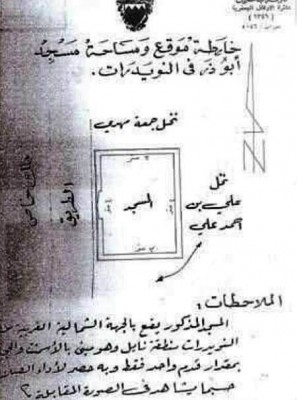 دائرة الأوقاف الجعفرية
خارطة موقع ومساحة مسجد
أبو ذر في النويدرات.
نخل جمعة مهدي
المسجد
نخل
علي بن
أحمد علي
الطريق
ملك خاص
الملاحظات:
المسجد المذكور يقع بالجهة الشمالية الغربية من
النويدرات منطقة نابل وهو مبني بالأسمنت
بمقدار قدم واحد فقط وبه حصر لأداء
حسبما يشاهد في الصورة المقابلة